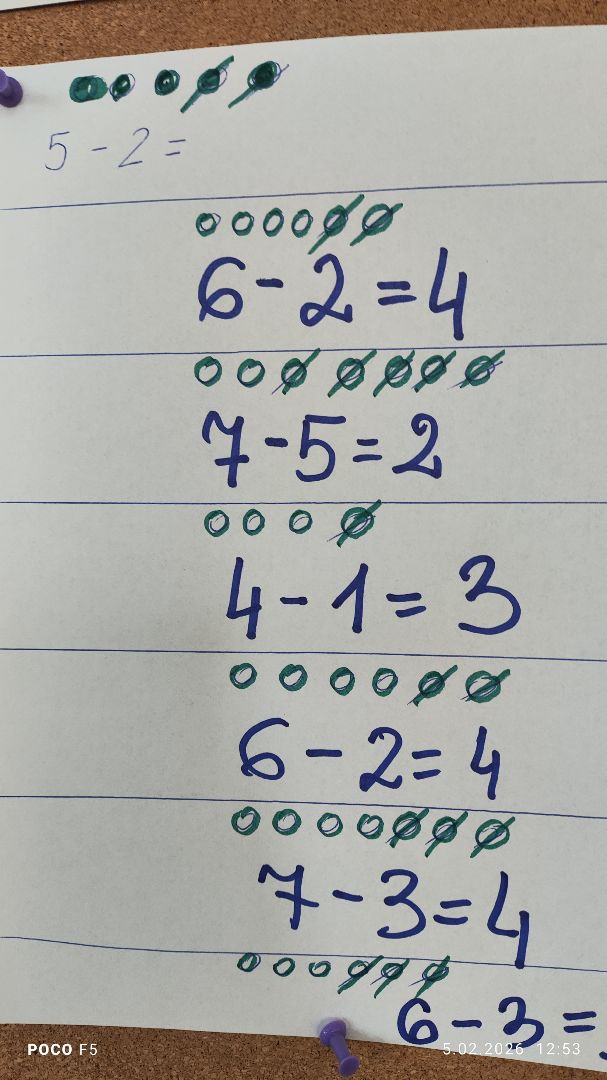 5 - 2 =
6 - 2 = 4
7 - 5 = 2
4 - 1 = 3
6 - 2 = 4
7 - 3 = 4
6 - 3 =
POCO F5
5.02.2026 12:53